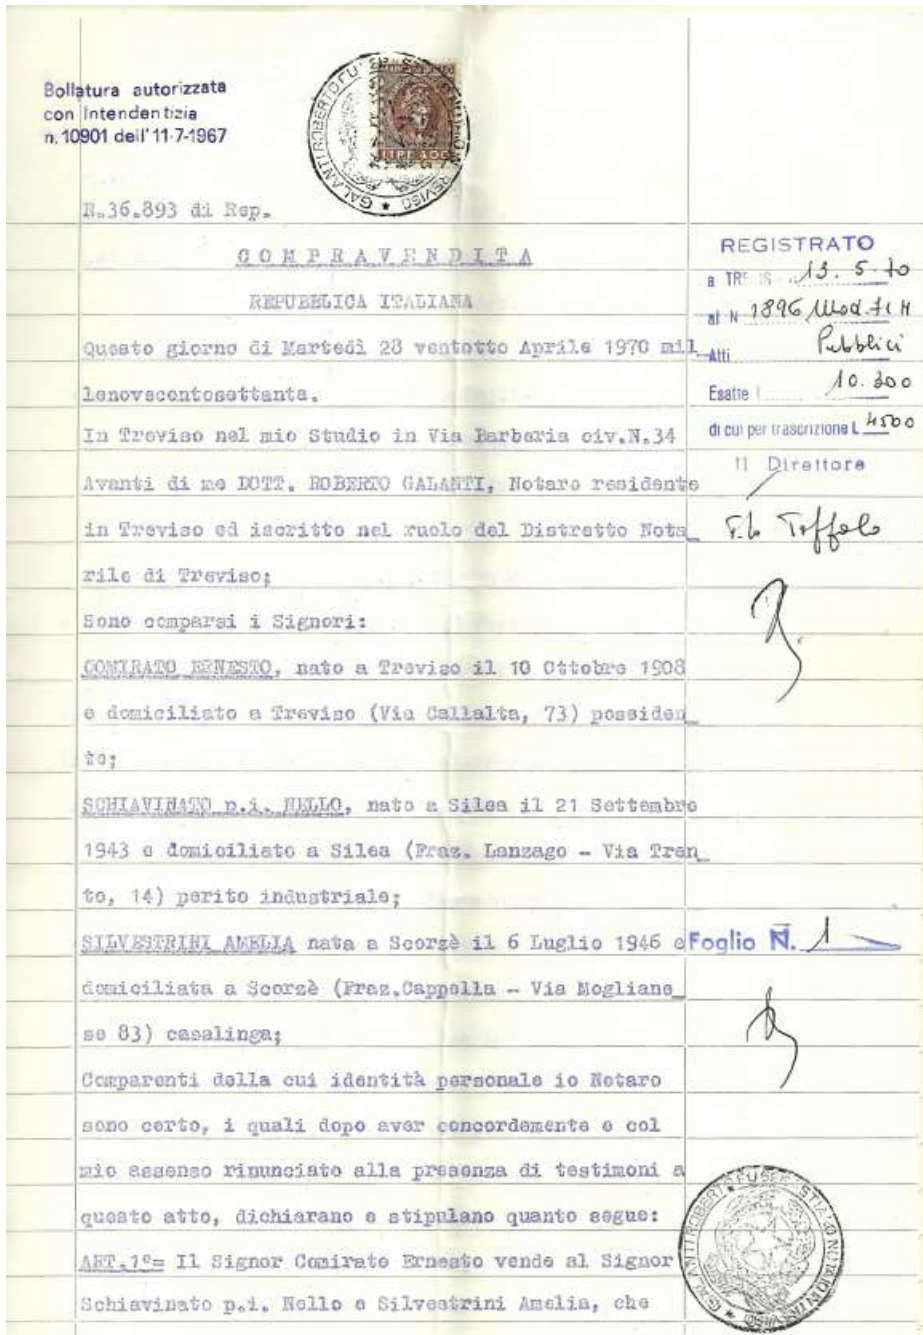 Bollatura autorizzata
con Intendentizia
n. 10901 dell'11-7-1967
LIRE
R.36.893 di Rep.
COMPRAVENDITA
REPUBBLICA ITALIANA
Questo giorno di Martedì 28 ventotto Aprile 1970 mil
lenovecentosettanta.
In Treviso nel mio Studio in Via Barberia civ.N.34
Avanti di me DOTT. ROBERTO GALANTI, Notaro residente
in Treviso ed iscritto nel ruolo del Distretto Nota_
rile di Treviso;
Sono comparsi i Signori:
COMIRATO ERNESTO, nato a Treviso il 10 Ottobre 1908
e domiciliato a Treviso (Via Callalta, 73) possiden_
te;
SCHIAVINATO p.i. NELLO, nato a Silea il 21 Settembre
1943 e domiciliato a Silea (Fraz. Lanzago - Via Tren_
to, 14) perito industriale;
SILVESTRINI AMELIA nata a Scorzè il 6 Luglio 1946 e
domiciliata a Scorzè (Fraz.Cappella - Via Mogliane_
se 83) casalinga;
Comparenti della cui identità personale io Notaro
sono certo, i quali dopo aver concordemente e col
mio assenso rinunciato alla presenza di testimoni a
questo atto, dichiarano e stipulano quanto segue:
ART.1°= Il Signor Comirato Ernesto vende al Signor
Schiavinato p.i. Nello e Silvestrini Amelia, che
REGISTRATO
a 13.5.70
al N 1896 Mod. 71 M
Atti Pubblici
Esatte L 10.300
di cui per trascrizione L 4500
Il Direttore
F.to Toffolo
Foglio N. 1